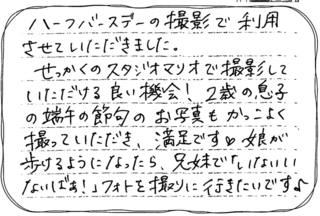 ハーフバースデーの撮影で利用
させていただきました。
せっかくのスタジオマリオで撮影して
いただける良い機会！2歳の息子
の端午の節句のお写真もかっこよく
撮っていただき、満足です♡娘が
歩けるようになったら、兄妹で「いないい
ないばぁ！」フォトを撮りに行きたいです♪